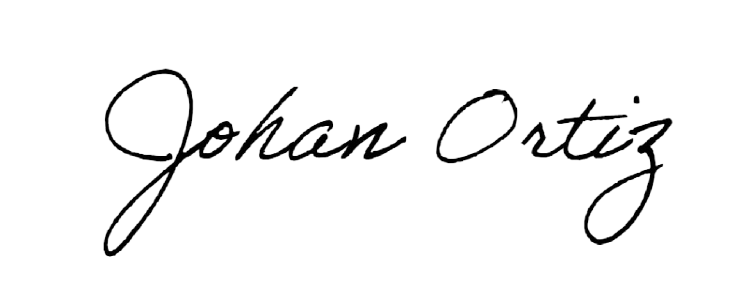 Johan Ortiz